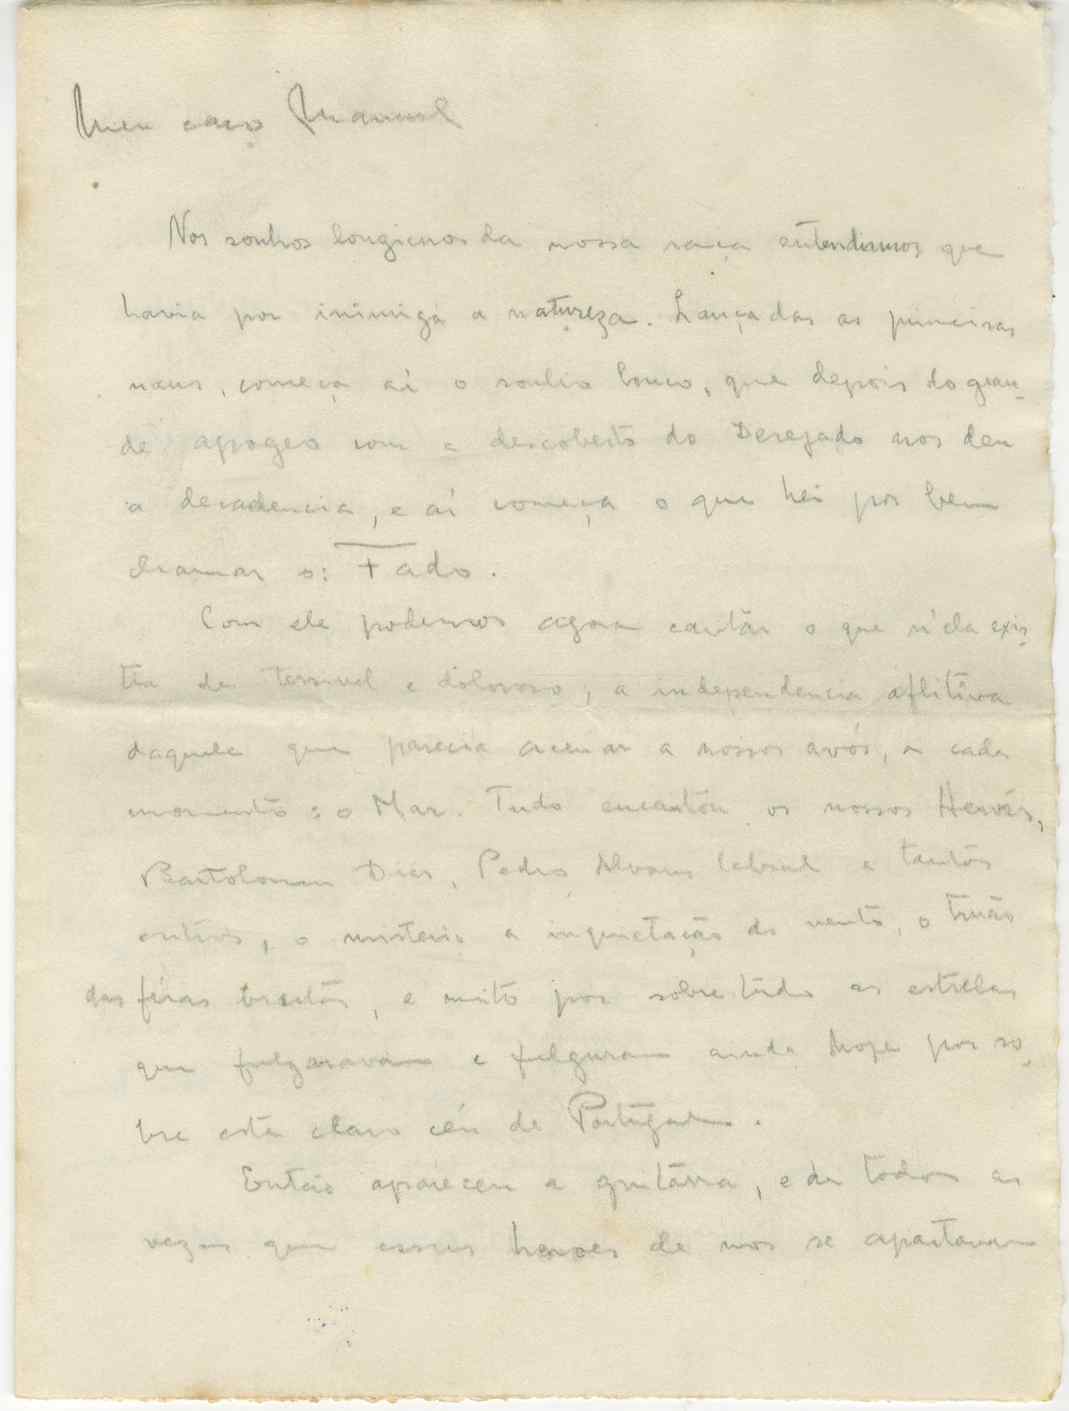 Meu caro Manuel
Nos sonhos longicuos da nossa raça entendiamos que
havia por inimiga a natureza. Lançadas as primeiras
naus, começa aí o sonho louco, que depois do gran-
de apogeo com a descoberta do Desejado nos deu
a decadencia, e aí começa o que hei por bem
chamar o: Fado.
Com ele podemos agora cantar o que n'ela exis-
tia de terrivel e doloroso, a independencia aflitiva
daquele que parecia acenar a nossos avós, a cada
momento: o Mar. Tudo encantou os nossos Herois,
Bartolomeu Dias, Pedro Alvares Cabral e tantos
outros, o misterio a inquietação do vento, o
das féras, e muito por sobre tudo as estrelas
que fulguravam e fulguram ainda hoje por so-
bre este claro céu de Portugal.
Então apareceu a guitarra, e de todas as
vezes que esses heroes de nos se apartavam